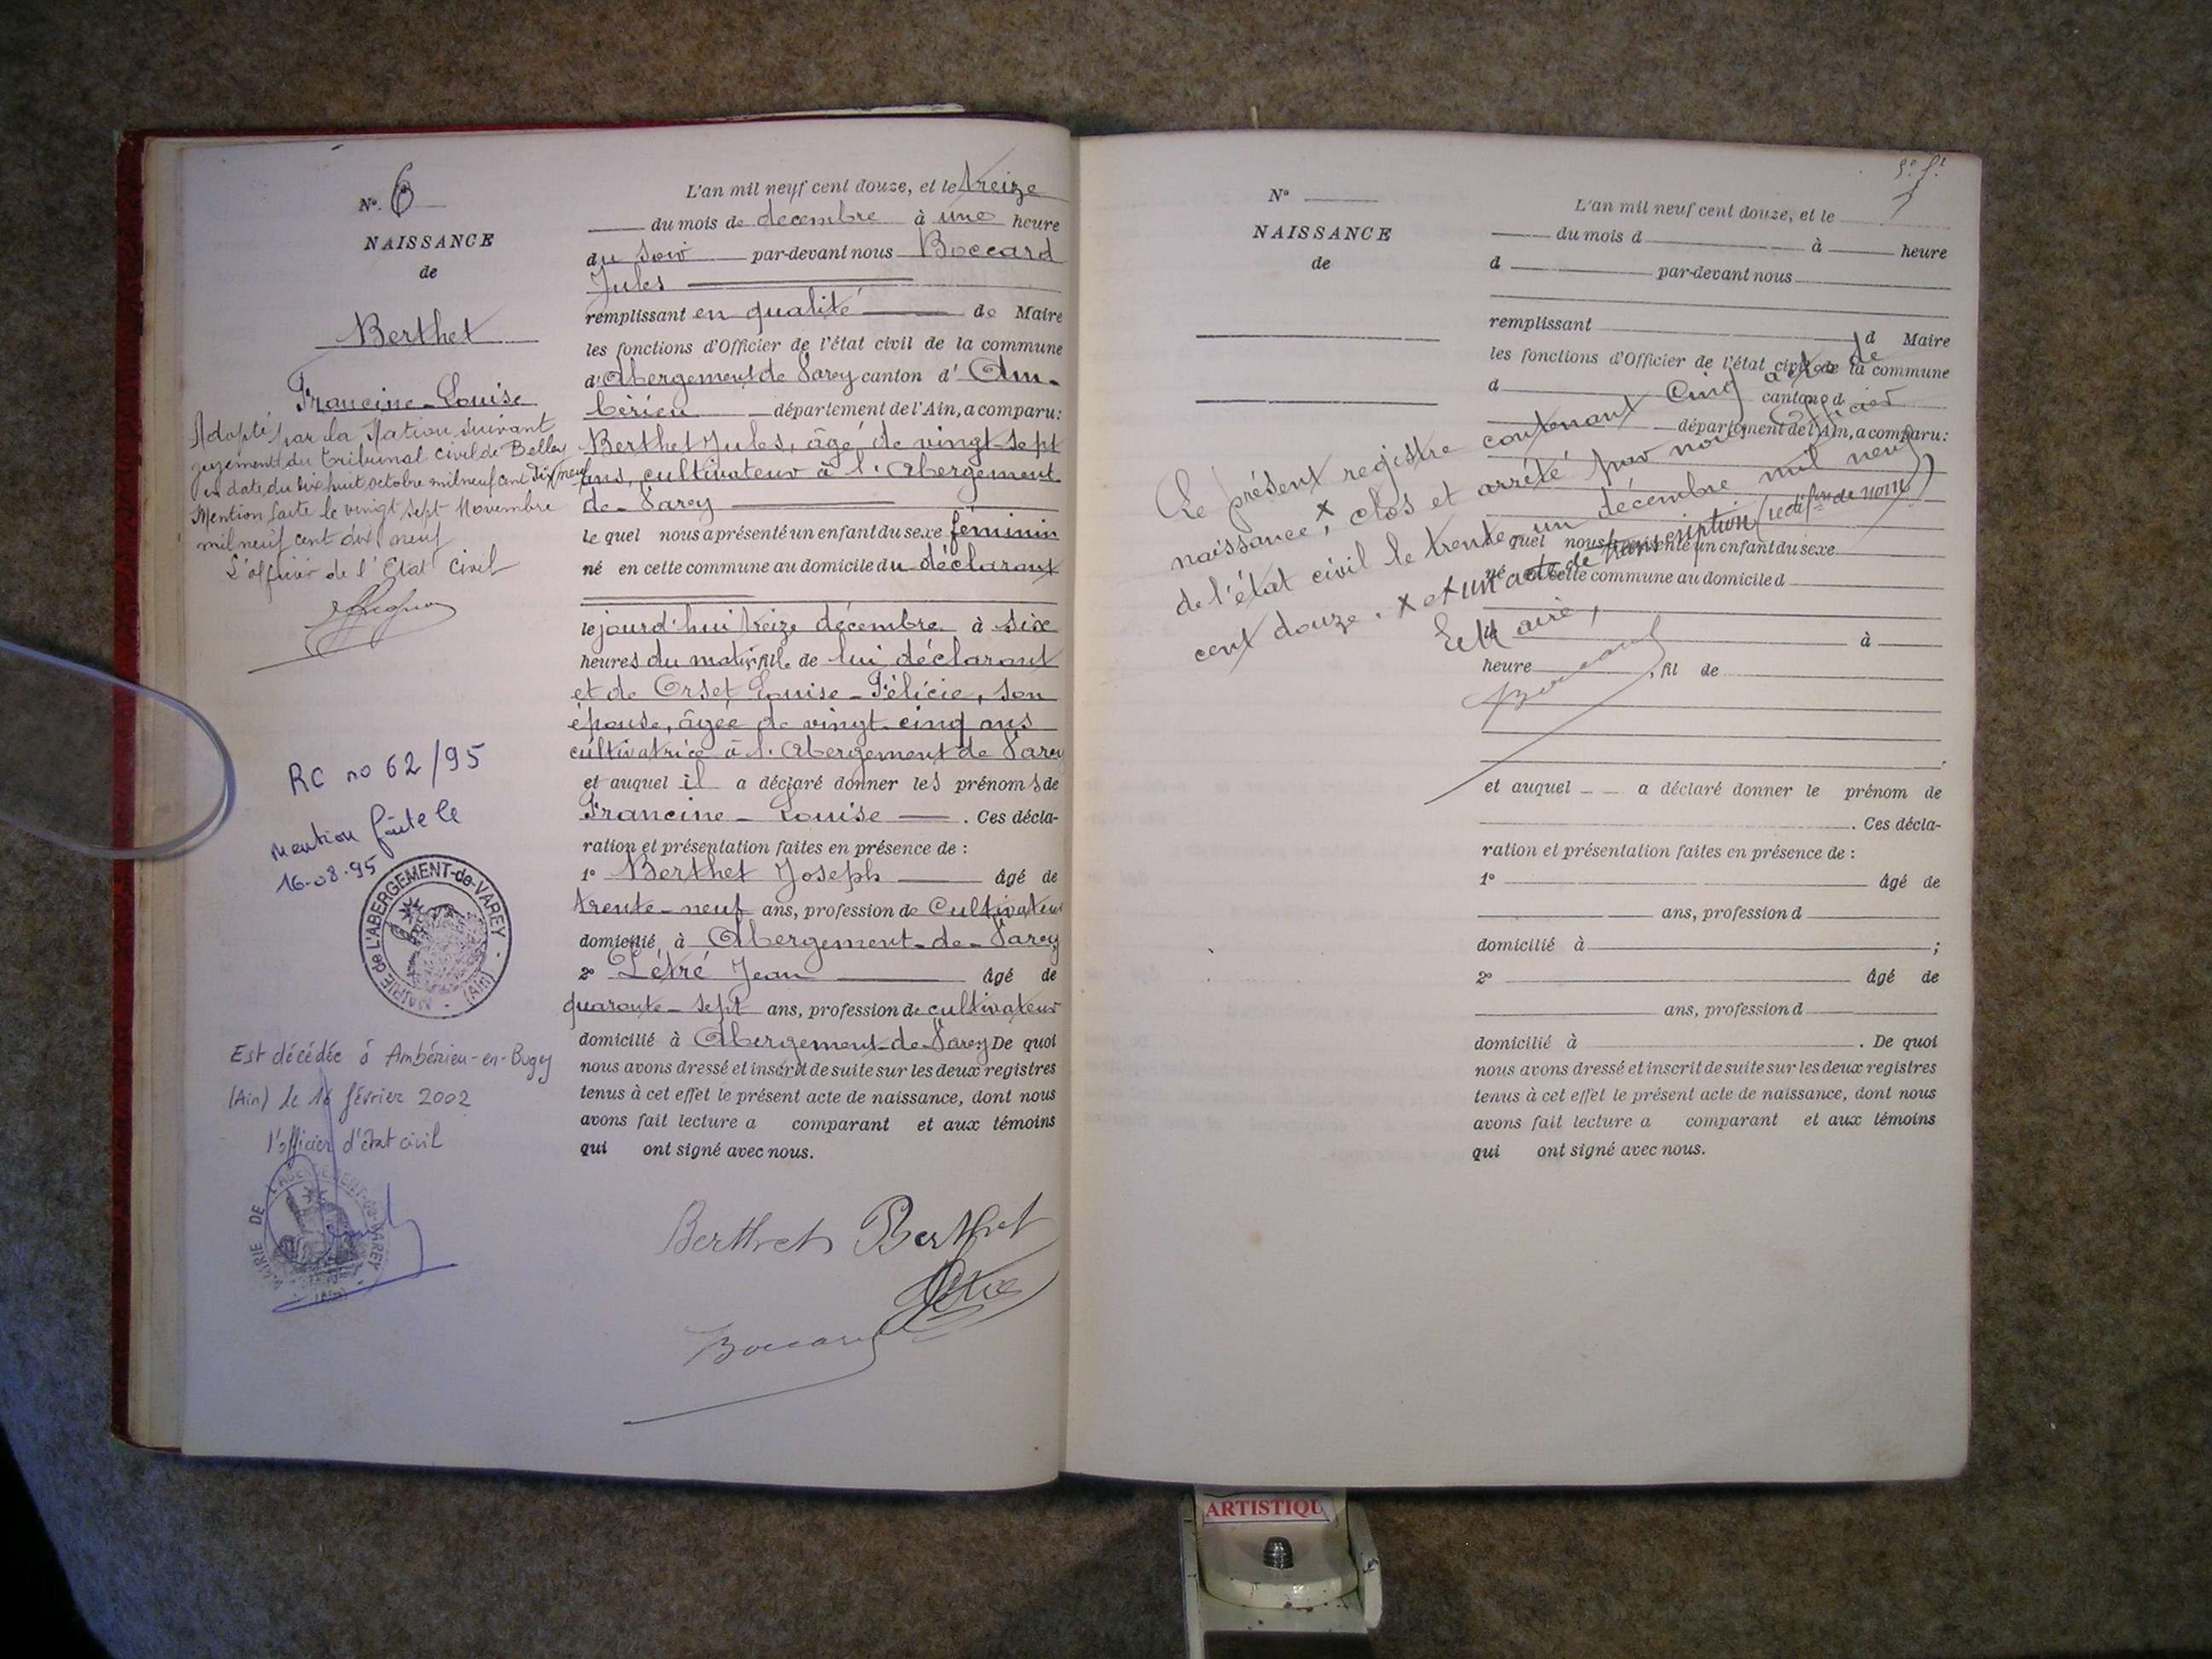 N° 6
NAISSANCE
de
Berthet
Francine-Louise
Adopté par la Nation suivant
jugement du Tribunal civil de Belley
en date du dix huit octobre mil neuf cent dix neuf
Mention faite le vingt sept Novembre
mil neuf cent dix neuf
L'officier de l'Etat Civil
RC no 62/95
mention faite le
16-08-95
MAIRIE de L'ABERGEMENT-de-VAREY - (Ain) -
Est décédée à Ambérieu-en-Bugey
(Ain) le 16 février 2002
l'officier d'état civil
MAIRIE DE L'ABERGEMENT-de-VAREY (Ain)
L'an mil neuf cent douze, et le treize
du mois de décembre à une heure
du soir par-devant nous Boccard
Jules
remplissant en qualité de Maire
les fonctions d'Officier de l'état civil de la commune
d'Abergement de Varey canton d'Am-
bérieu département de l'Ain, a comparu:
Berthet Jules, âgé de vingt-sept
ans, cultivateur à l'Abergement
de-Varey
le quel nous a présenté un enfant du sexe féminin
né en cette commune au domicile du déclarant
le jourd'hui treize décembre à six
heures du matin, fille de lui déclarant
et de Orset Louise-Félicie, son
épouse, âgée de vingt-cinq ans
cultivatrice à l'Abergement de Varey
et auquel il a déclaré donner les prénoms de
Francine-Louise . Ces décla-
ration et présentation faites en présence de :
1° Berthet Joseph âgé de
trente-neuf ans, profession de cultivateur
domicilié à Abergement-de-Varey
2° Létré Jean âgé de
quarante-sept ans, profession de cultivateur
domicilié à Abergement-de-Varey De quoi
nous avons dressé et inscrit de suite sur les deux registres
tenus à cet effet le présent acte de naissance, dont nous
avons fait lecture a comparant et aux témoins
qui ont signé avec nous.
Berthet Berthet
Boccard
N°
NAISSANCE
de
L'an mil neuf cent douze, et le
du mois d à heure
d par-devant nous
remplissant d Maire
les fonctions d'Officier de l'état civil de la commune
d canton d
département de l'Ain, a comparu:
Le présent registre contenant cinq actes de
naissance, x clos et arrêté par nous officier
de l'état civil le trente un décembre mil neuf
cent douze. x et un acte de transcription (rectif^on de nom)
Le Maire,
Boccard
le quel nous a présenté un enfant du sexe
né en cette commune au domicile d
le à
heure , fil de
et auquel a déclaré donner le prénom de
. Ces décla-
ration et présentation faites en présence de :
1° âgé de
ans, profession d
domicilié à ;
2° âgé de
ans, profession d
domicilié à . De quoi
nous avons dressé et inscrit de suite sur les deux registres
tenus à cet effet le présent acte de naissance, dont nous
avons fait lecture a comparant et aux témoins
qui ont signé avec nous.
ARTISTIQU